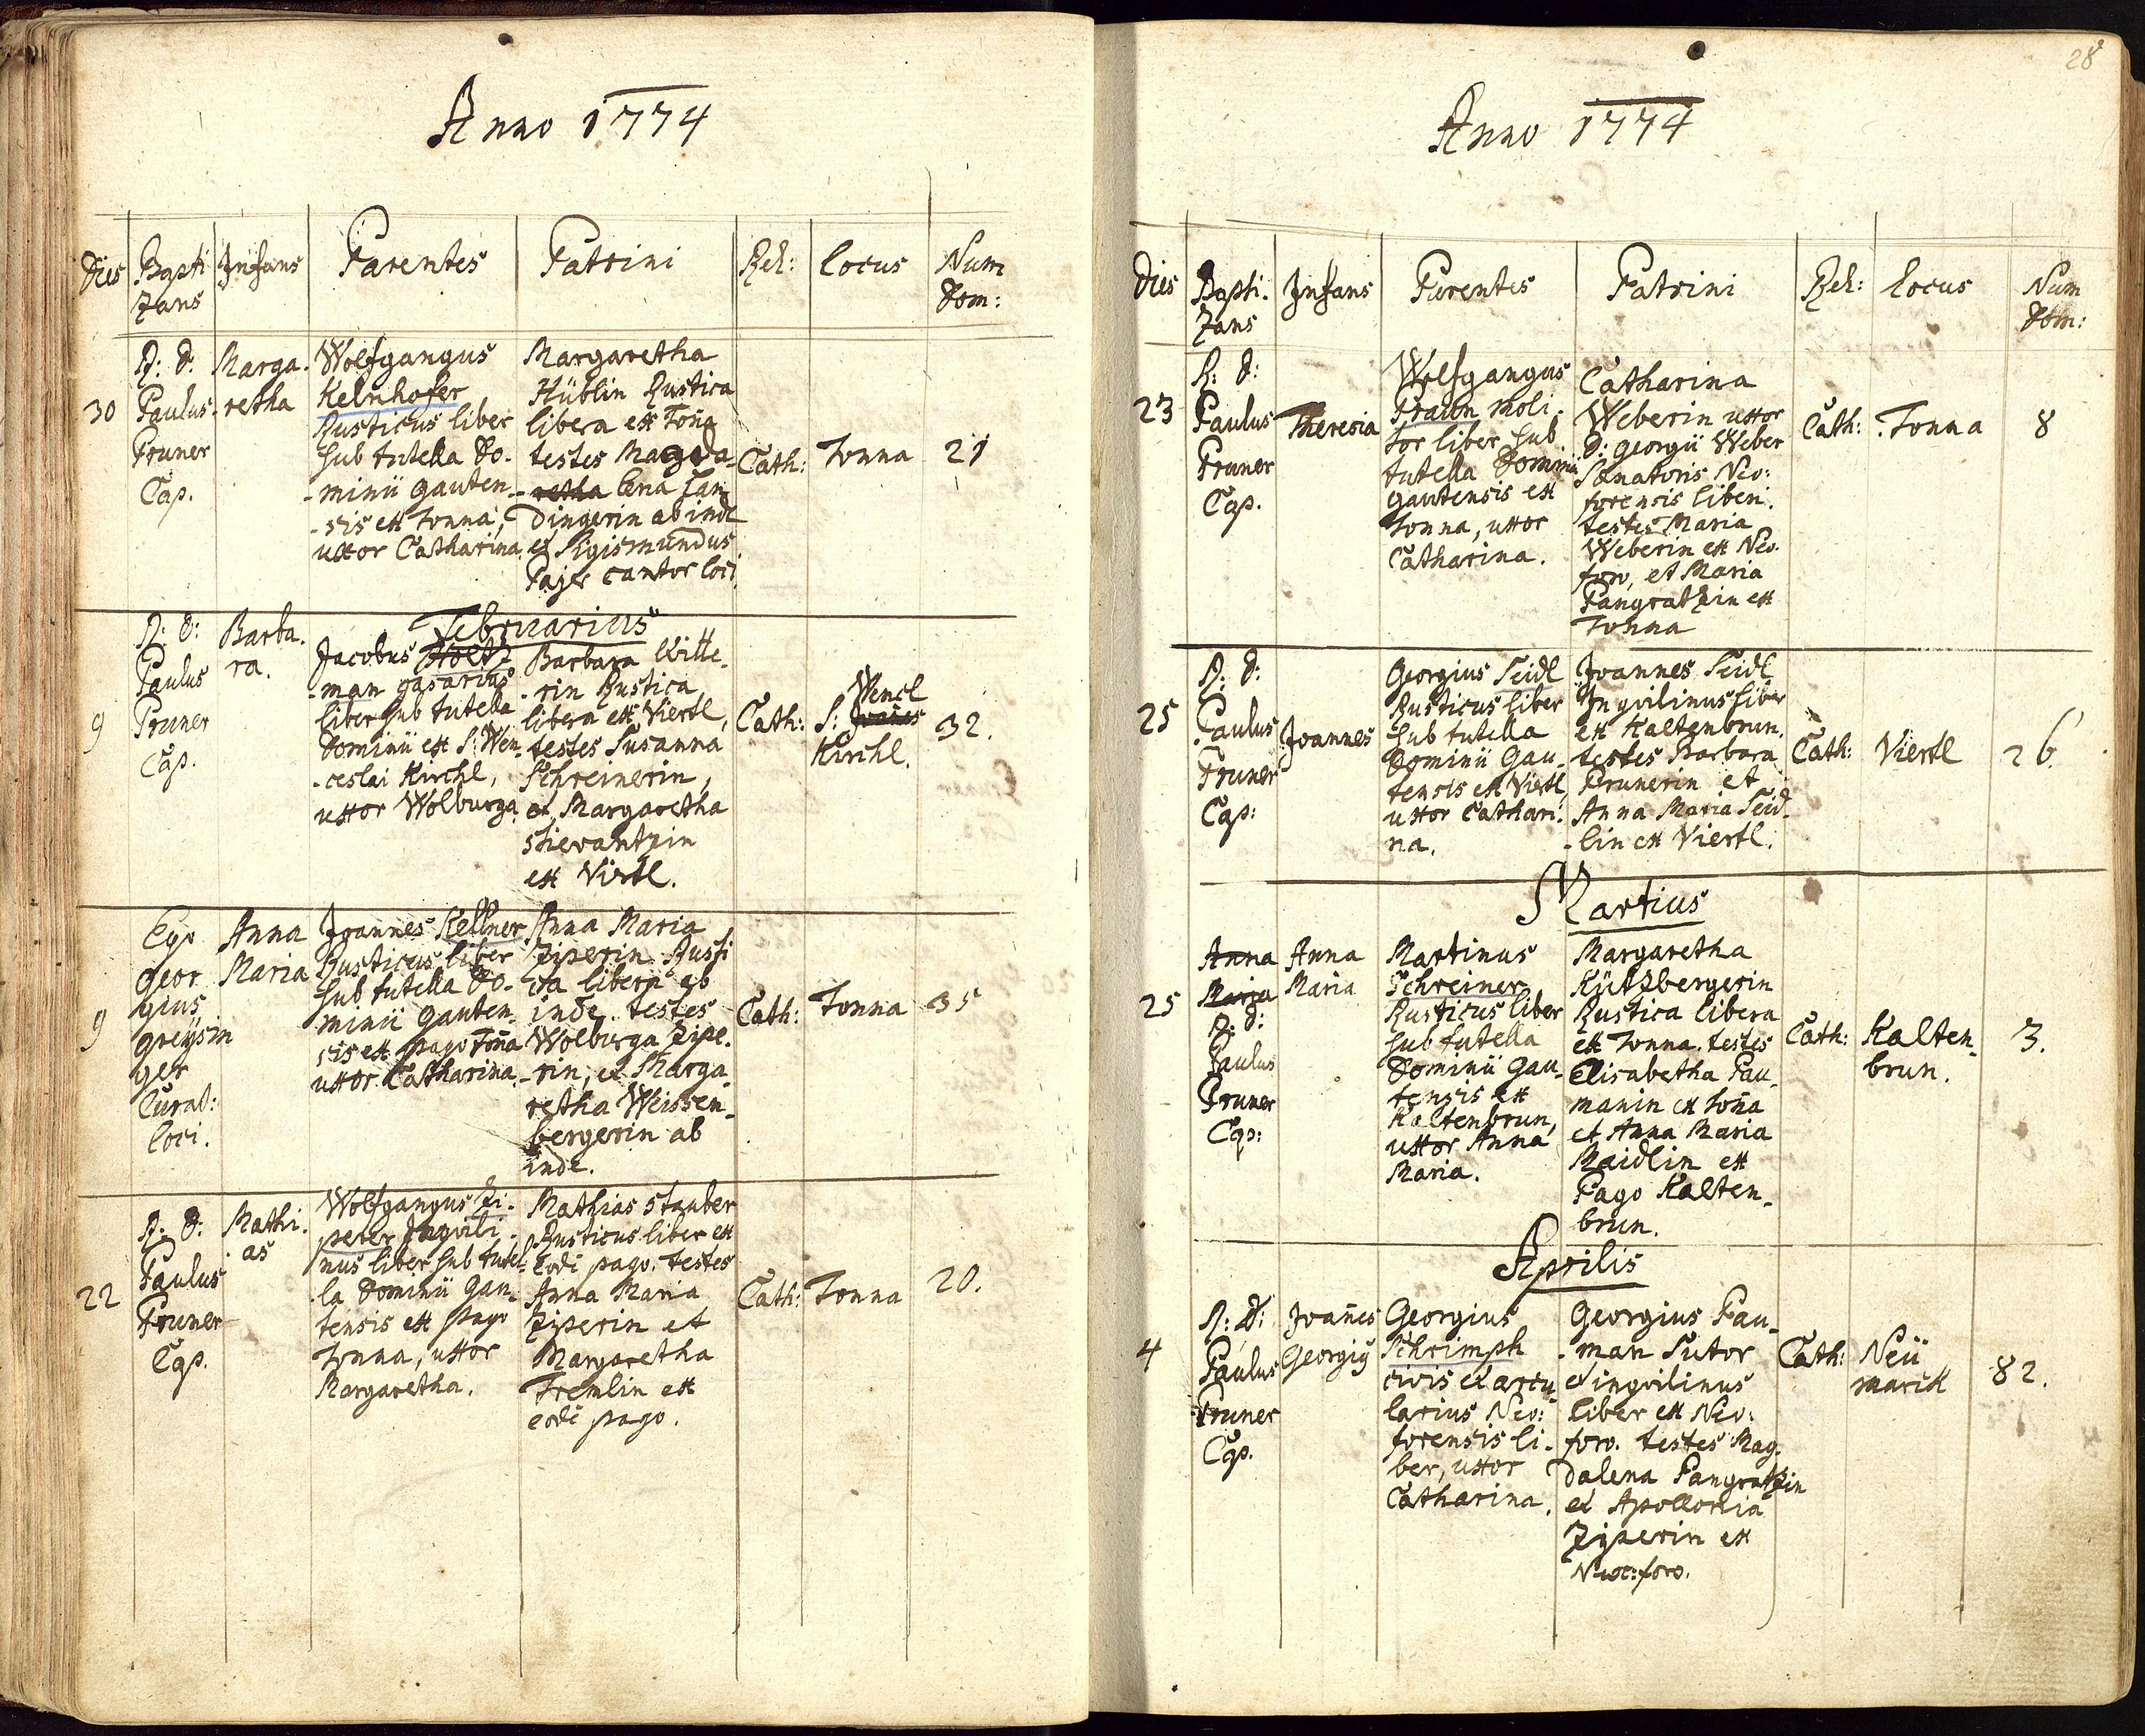 Anno 1774
Dies Bapti Infans Parentes Patrini Rel: Locus Num
zans Dom:
30
R: D:
Paulus
Pruner
Cap.
Marga-
retha
Wolfgangus
Kelnhofer
Rusticus liber
sub tutella Do-
-minii Gauten-
-sis ex Tonna,
uxor Catharina.
Margaretha
Hüblin Rustica
libera ex Toña
testes Magda-
-retha lena
Dingerin ab inde
et Sigismundus
Pajer cantor loci
Cath:
Tonna
21
Februarius
9
R: D:
Paulus
Pruner
Cap.
Barba-
ra.
Jacobus Holtz
-man gasarius
liber sub tutella
Dominii ex S: Wen-
-ceslai Kirchl,
uxor Wolburga.
Barbara Witte-
-rin Rustica
libera ex Viertl,
testes Susanna
Schreinerin,
et Margaretha
ex Viertl.
Cath:
Wencl
S: Joañes
Kirchl.
32.
9
Ego
Geor
gius
Greysin
ger
Curat:
loci.
Anna
Maria
Joannes Kellner
Rusticus liber
sub tutella Do-
minii Gauten-
sis ex pago Toña
uxor Catharina.
Anna Maria
Ziperin Rusti
ca libera ab
inde. testes
Wolburga Zipe-
-rin, et Marga-
retha Weissen-
bergerin ab
inde.
Cath:
Tonna
35
22
R: D:
Paulus
Pruner
Cap.
Mathi-
as
Wolfgangus Zi-
perer Inqvili-
nus liber sub tutel-
-la Dominii Gau-
tensis ex pago
Tonna, uxor
Margaretha.
Mathias Stauber
Rusticus liber ex
eodē pago. testes
Anna Maria
Ziperin et
Margaretha
Fremlin ex
eodē pago.
Cath:
Tonna
20.
28
Anno 1774
Dies Bapti- Infans Parentes Patrini Rel: Locus Num
zans Dom:
23
R: D:
Paulus
Pruner
Cap.
Theresia
Wolfgangus
Praun Moli-
tor liber sub
tutella Dominii
Gautensis ex
Tonna, uxor
Catharina.
Catharina
Weberin uxor
D: Georgii Weber
Senatoris Neo:
forensis liberi.
testes Maria
Weberin ex Neo-
foro, et Maria
Pangratzin ex
Tonna
Cath:
Tonna
8
25
R: D:
Paulus
Pruner
Cap:
Joannes
Georgius Seidl
Rusticus liber
sub tutella
Dominii Gau-
tensis ex Viertl,
uxor Cathari-
na.
Joannes Seidl
Inqvilinus liber
ex Kaltenbrun.
testes Barbara
Prunerin et
Anna Maria Seid-
-lin ex Viertl.
Cath:
Viertl
26.
Martius
25
Anna
Maria
R: D:
Paulus
Pruner
Cap:
Anna
Maria
Martinus
Schreiner
Rusticus liber
sub tutella
Dominii Gau-
tensis ex
Kaltenbrun,
uxor Anna
Maria.
Margaretha
Kützbergerin
Rustica libera
ex Tonna. testes
Elisabetha Pau-
manin ex Toña
et Anna Maria
Maidlin ex
Pago Kalten-
brun.
Cath:
Kalten-
brun.
3.
Aprilis
4
R: D:
Paulus
Pruner
Cap.
Joañes
Georgiꝰ
Georgius
Schrimph
civis et arcu-
larius Neo:
forensis li-
ber, uxor
Catharina.
Georgius Pau-
-man Sutor
et inqvilinus
liber ex Neo:
foro. testes Mag-
dalena Pangratzin
et Apollonia
Ziperin ex
Neoe:foro.
Cath:
Neü
marck
82.